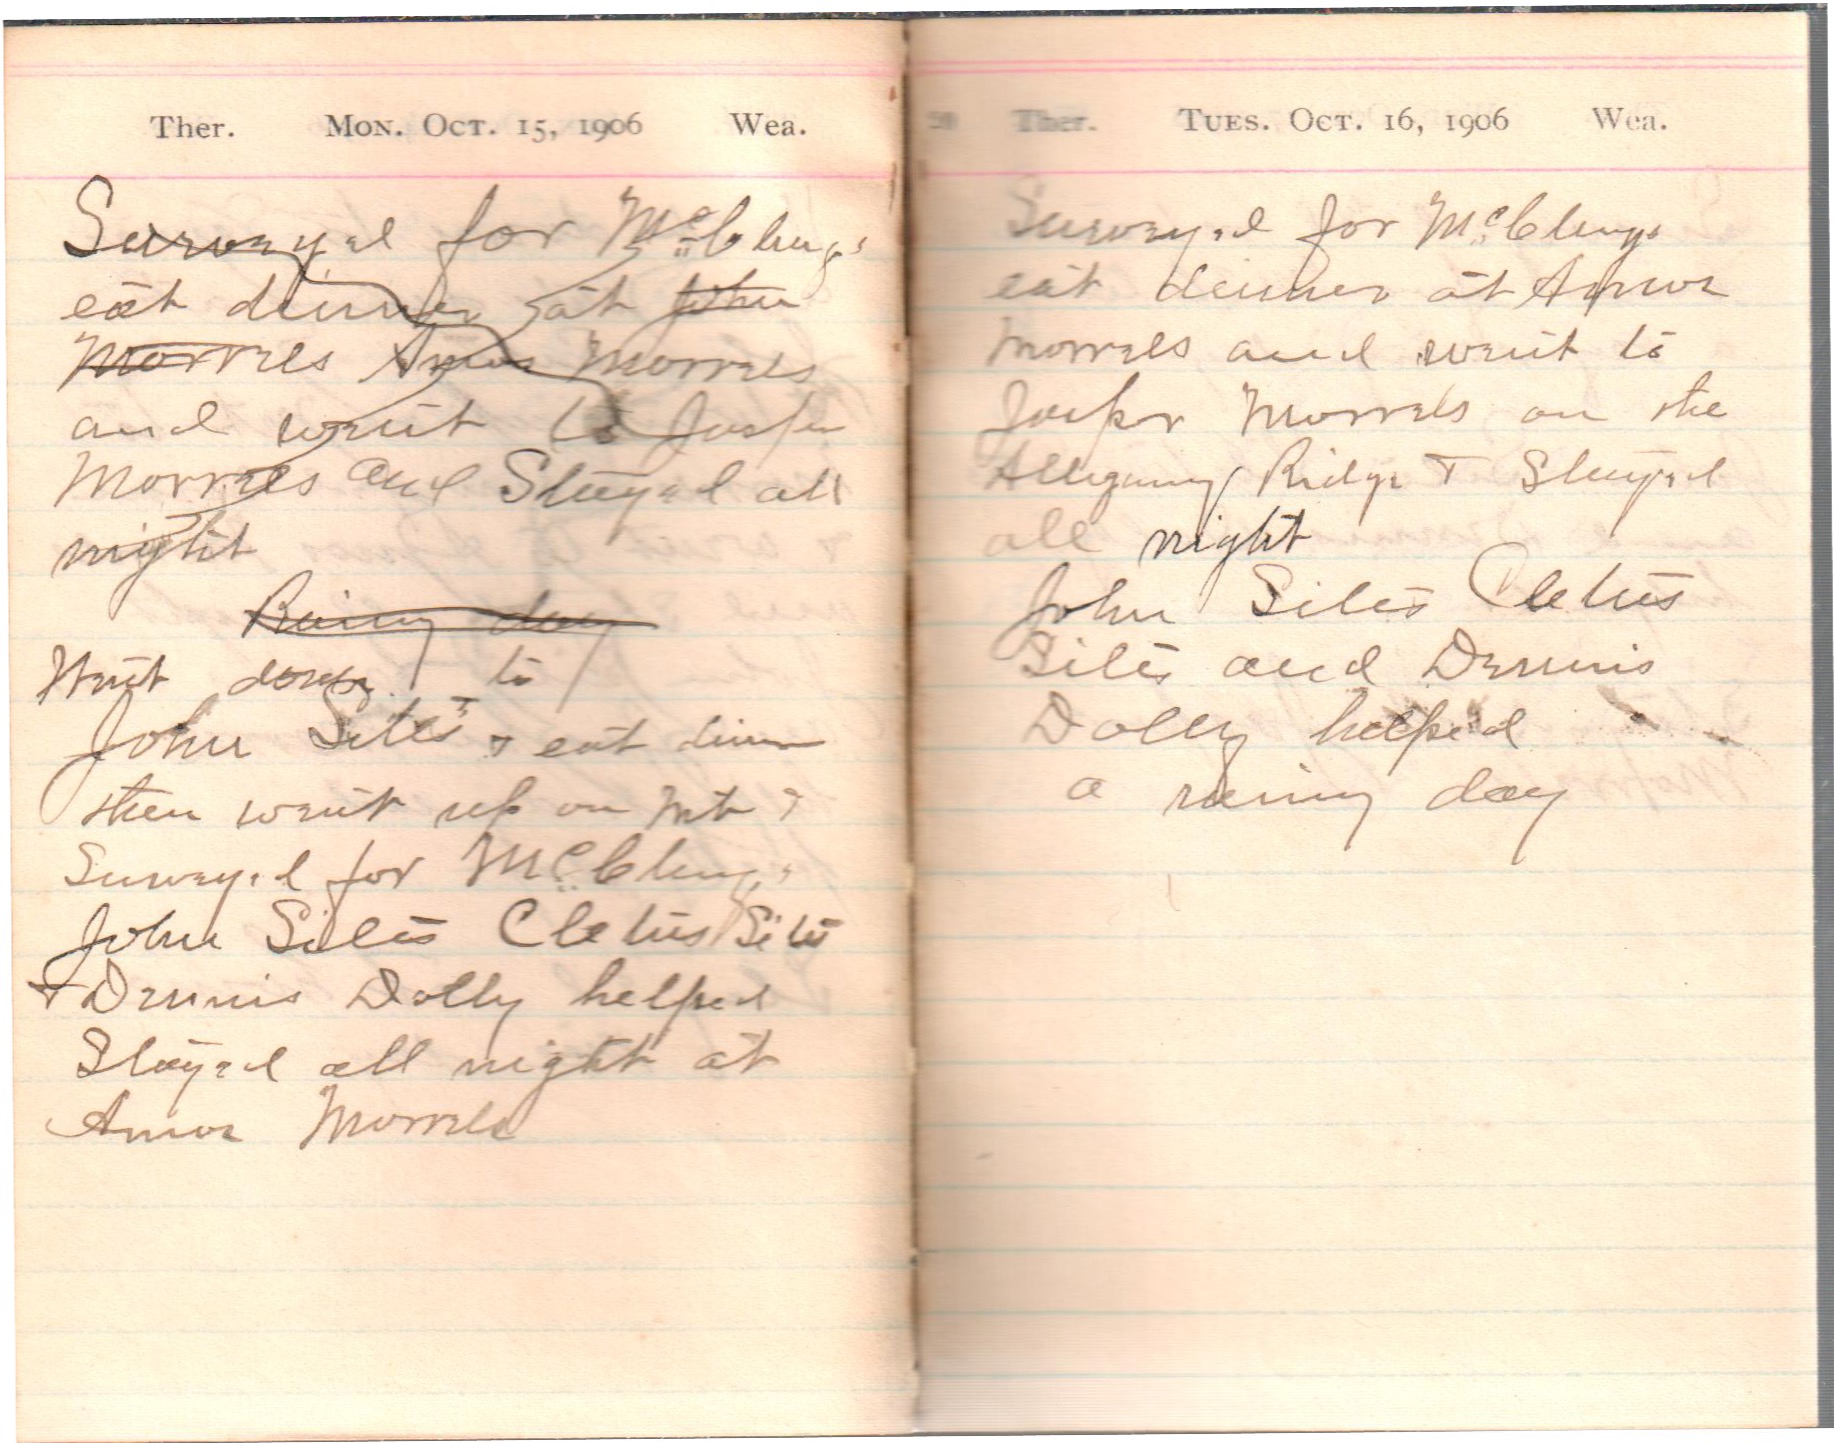 Ther. Mon. Oct. 15, 1906 Wea.
Surveyed for McClungs
eat dinner at John
Morrels Amos Morrels
and went to Jasper
Morrels and Stayed all
night
Rainy day
Went down to
John Sites & eat dinner
then went up on Mt &
Surveyed for McClungs
John Sites Cletus Sites
& Dennis Dolly helped
Stayed all night at
Amos Morrels
Ther. Tues. Oct. 16, 1906 Wea.
Surveyed for McClungs
eat dinner at Amos
Morrels and went to
Jasper Morrels on the
Allegany Ridge & Stayed
all night
John Sites Cletus
Sites and Dennis
Dolly helped
a rainy day